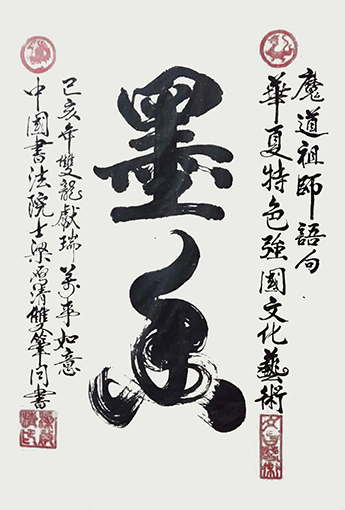 魔道祖師語句
華夏特色強國文化藝術
墨
己亥年雙龍獻瑞萬事如意
中國書法院士梁清雙筆同書